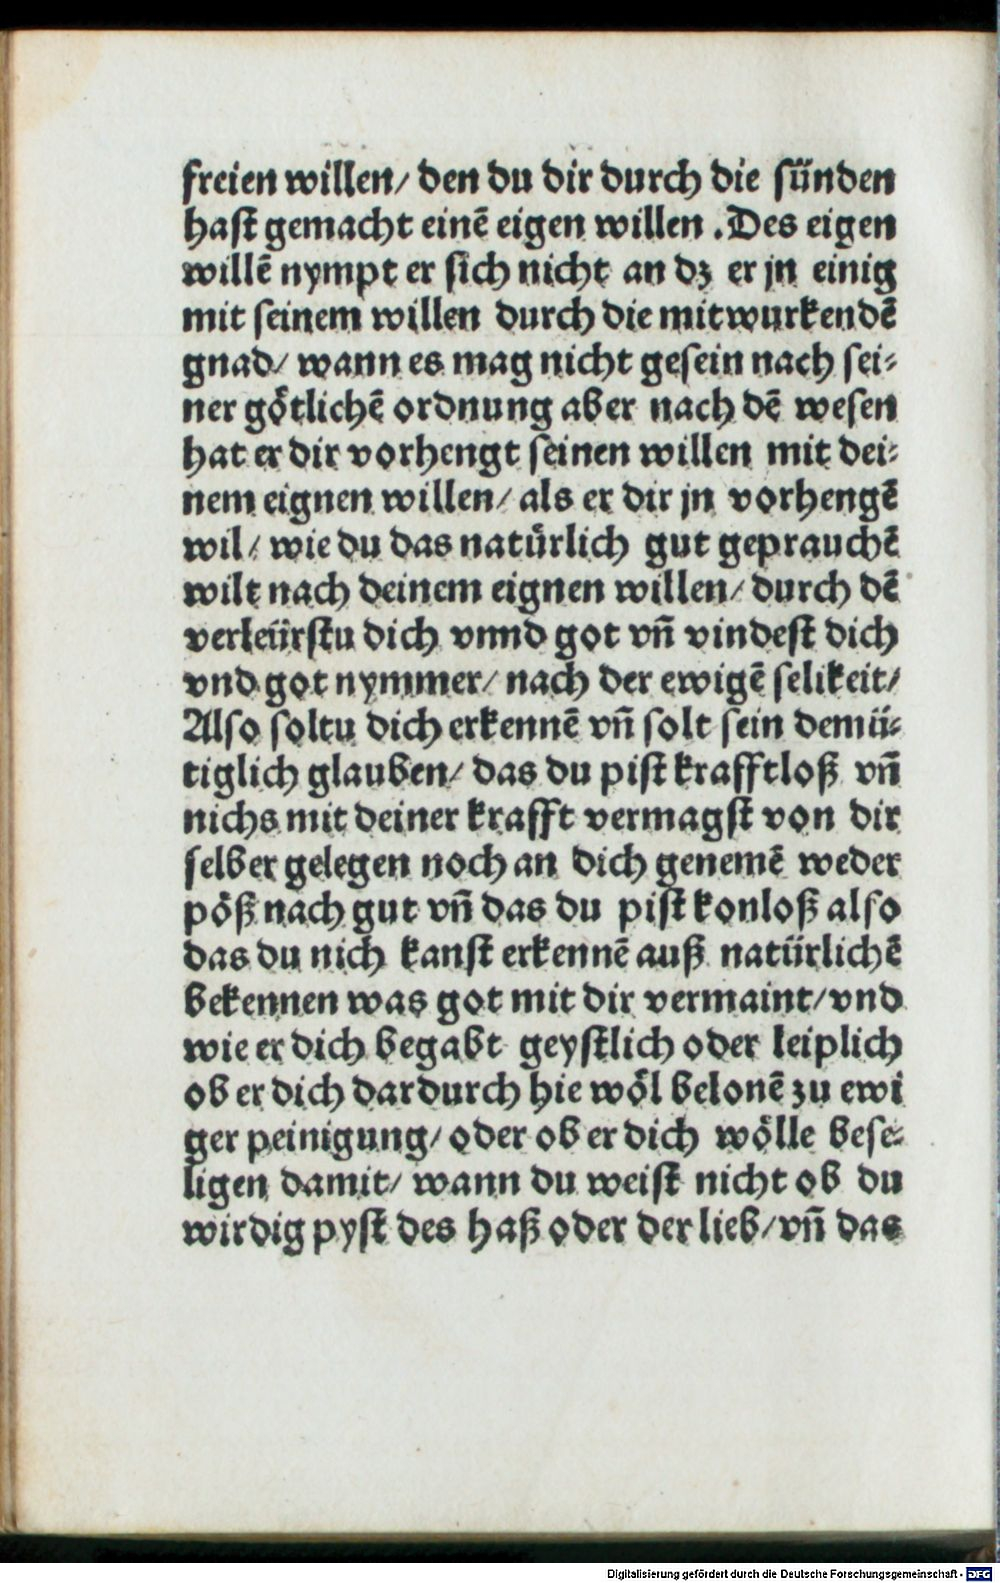 freien willen/ den du dir durch die sünden
hast gemacht einē eigen willen .Des eigen
willē nympt er sich nicht an dz er jn einig
mit seinem willen durch die mitwurkendē
gnad/ wann es mag nicht gesein nach sei⸗
ner götlichē ordnung aber nach dē wesen
hat er dir vorhengt seinen willen mit dei⸗
nem eignen willen/ als er dir jn vorhengē
wil/ wie du das natürlich gut geprauchē
wilt nach deinem eignen willen/ durch dē
verleürstu dich vnnd got vñ vindest dich
vnd got nymmer/ nach der ewigē selikeit/
Also soltu dich erkennē vñ solt sein demü⸗
tiglich glauben/ das du pist krafftloß vñ
nichs mit deiner krafft vermagst von dir
selber gelegen noch an dich genemē weder
pöß nach gut vñ das du pist konloß also
das du nich kanst erkennē auß natürlichē
bekennen was got mit dir vermaint/ vnd
wie er dich begabt geystlich oder leiplich
ob er dich dardurch hie wöl belonē zu ewi
ger peinigung/ oder ob er dich wölle bese⸗
ligen damit/ wann du weist nicht ob du
wirdig pyst des haß oder der lieb/ vñ das
Digitalisierung gefördert durch die Deutsche Forschungsgemeinschaft - DFG